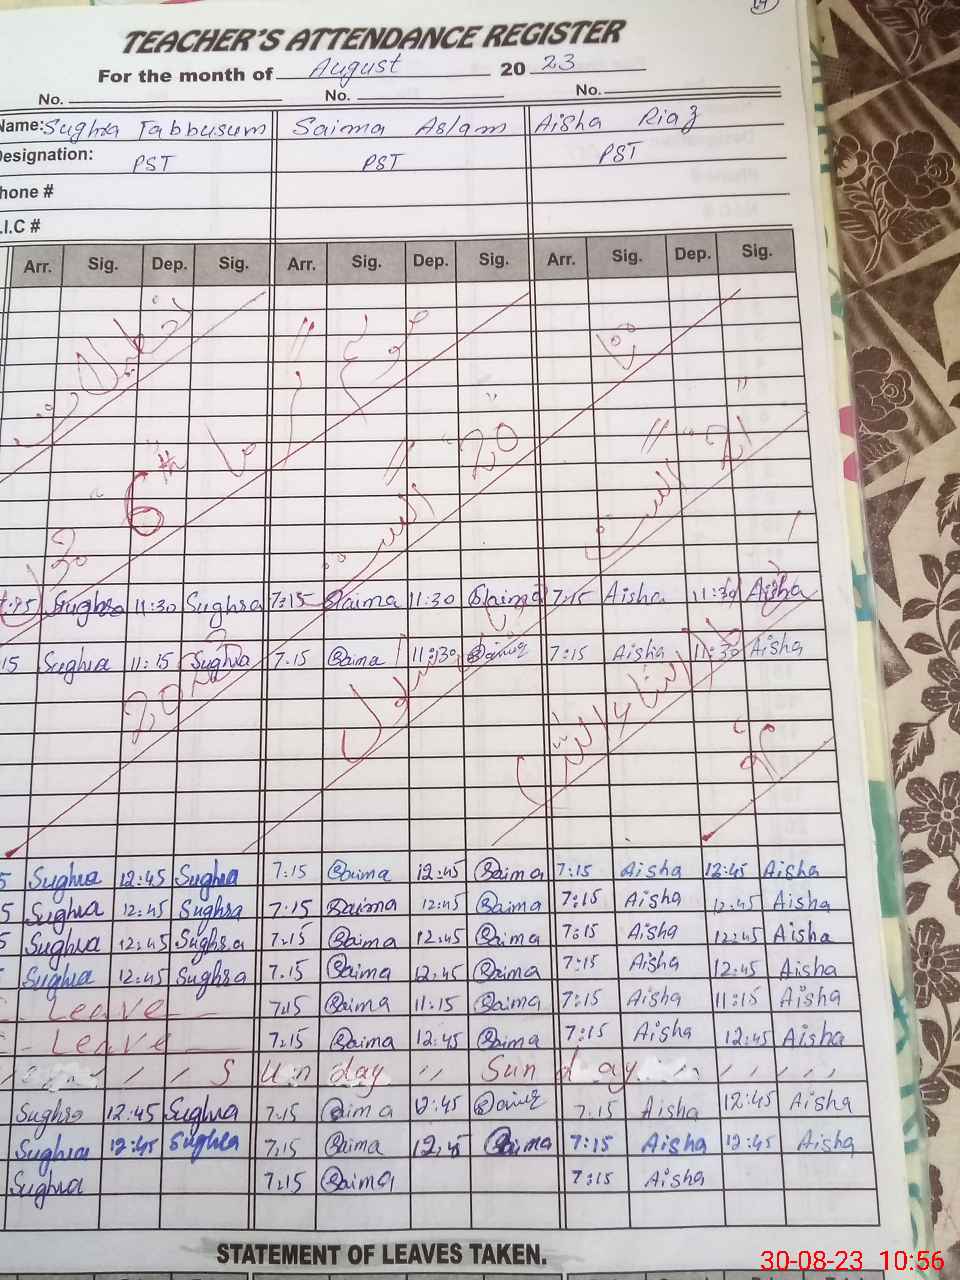 TEACHER'S ATTENDANCE REGISTER
For the month of August 20 23
No. No. No.
Name: Sughra Tabbusum Saima Aslam Aisha Riaz
Designation: PST PST PST
hone #
.I.C #
Arr. Sig. Dep. Sig. Arr. Sig. Dep. Sig. Arr. Sig. Dep. Sig.
6th
20
21
Sughra 11:30 Sughra 7:15 Saima 11:30 Saima 7:15 Aisha 11:30 Aisha
15 Sughra 11:15 Sughra 7.15 Saima 11:30 Saima 7:15 Aisha 11:30 Aisha
20
5 Sughra 12:45 Sughra 7:15 Saima 12:45 Saima 7:15 Aisha 12:45 Aisha
5 Sughra 12:45 Sughra 7.15 Saima 12:45 Saima 7:15 Aisha 12:45 Aisha
5 Sughra 12:45 Sughra 7.15 Saima 12.45 Saima 7:15 Aisha 12:45 Aisha
Sughra 12:45 Sughra 7.15 Saima 12:45 Saima 7:15 Aisha 12:45 Aisha
Leave 7:15 Saima 11:15 Saima 7:15 Aisha 11:15 Aisha
Leave 7:15 Saima 12:45 Saima 7:15 Aisha 12:45 Aisha
Sunday Sunday
Sughra 12:45 Sughra 7.15 Saima 12:45 Saima 7.15 Aisha 12:45 Aisha
Sughra 12:45 Sughra 7.15 Saima 12.45 Saima 7:15 Aisha 12:45 Aisha
Sughra 7:15 Saima 7:15 Aisha
STATEMENT OF LEAVES TAKEN.
30-08-23 10:56